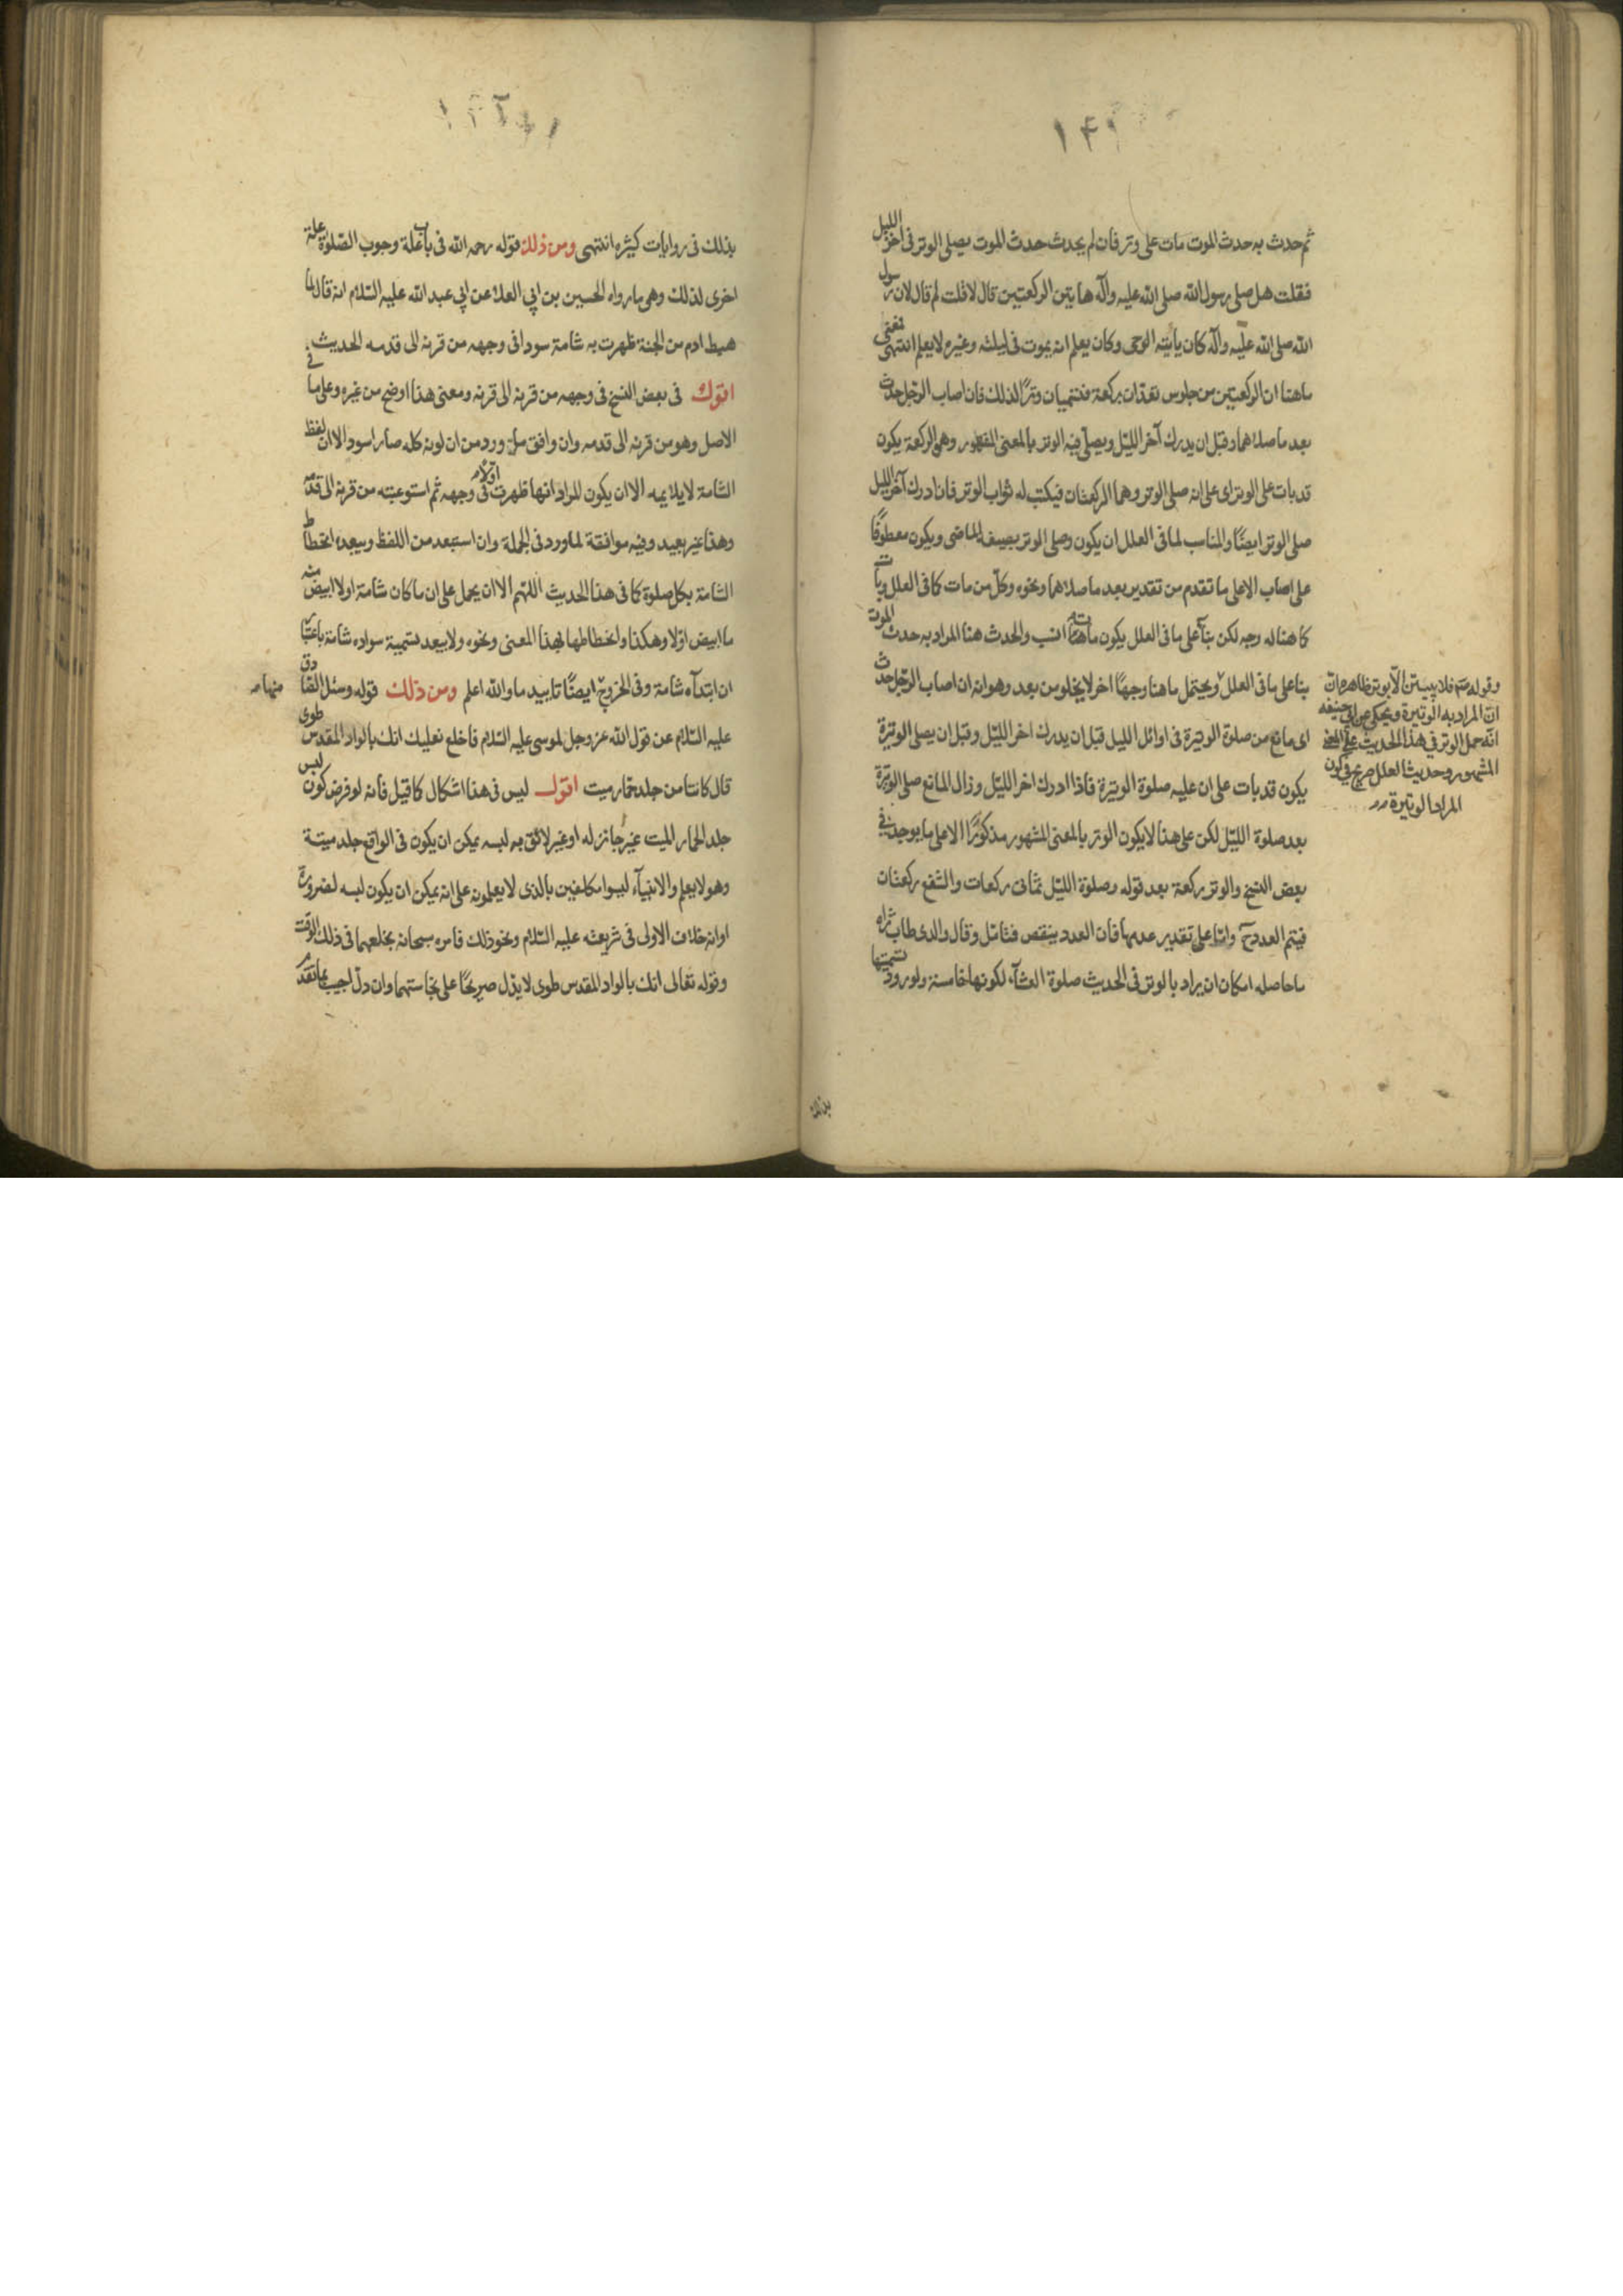 ثم حدث به حدث الموت مات على وتر فان لم يحدث حدث الموت يصلى الوتر فى آخر الليل
فقلت هل صلى رسول الله صلى الله عليه وآله هاتين الركعتين قال لا قلت لم قال لان رسول
الله صلى الله عليه وآله كان يأتيه الوحى وكان يعلم انه يموت فى ليلته وغيره لا يعلم انتهى
ماهنا ان الركعتين من جلوس تعدان بركعة فتسميان وترا لذلك فان اصاب الرجل حدث
بعد ما صلاهما وقبل ان يدرك آخر الليل ويصلى فيه الوتر بالمعنى المشهور وهى الركعة يكون
قد بات على الوتر اى على انه صلى الوتر وهما الركعتان فيكتب له ثواب الوتر فان ادرك آخر الليل
صلى الوتر ايضًا والمناسب لما فى العلل ان يكون وصلى الوتر بصيغة الماضى ويكون معطوفًا
على اصاب الا على ما تقدم من تقدير بعد ما صلاهما ونحوه وكل من مات كما فى العلل وبات
كما هنا له وجه لكن بناء على ما فى العلل يكون مات هنا انسب والحدث هنا المراد به حدث الموت
بناء على ما فى العلل ويحتمل ما هنا وجهًا اخر لا يخلو من بعد وهو انه ان اصاب الرجل حدث
اى مانع من صلوة الوتيرة فى اوائل الليل قبل ان يدرك اخر الليل وقبل ان يصلى الوتيرة
يكون قد بات على ان عليه صلوة الوتيرة فاذا ادرك اخر الليل وزال المانع صلى الوتيرة
بعد صلوة الليل لكن على هنا لا يكون الوتر بالمعنى المشهور مذكورًا الا على ما يوجد فى
بعض النسخ والوتر ركعة بعد قوله وصلوة الليل ثمانى ركعات والشفع ركعتان
فيتم العدد ح واما على تقدير عدمها فان العدد ينقص فتامل وقال والدى طاب ثراه
ما حاصله امكان ان يراد بالوتر فى الحديث صلوة العشآء لكونها خامسة ولورود تسميتها
وقوله فلا يبيتن الا بوتر ظاهره
ان المراد به الوتيرة ويحكى عن ابى حنيفه
انه حمل الوتر فى هذا الحديث على المعنى
المشهور وحديث العلل صريح فى كون
المراد الوتيرة
بذلك
بذلك فى روايات كثيره انتهى ومن ذلك قوله رحمه الله فى باب علة وجوب الصلوة علة
اخرى لذلك وهى ما رواه الحسين بن ابى العلا عن ابى عبد الله عليه السلام انه قال لما
هبط ادم من الجنة ظهرت به شامة سودا فى وجهه من قرنه الى قدمه الحديث
اقول فى بعض النسخ فى وجهه من قرنه الى قرنه ومعنى هذا اوضح من غيره وعلى ما فى
الاصل وهو من قرنه الى قدمه وان وافق ما ورد من ان لونه كله صار اسود الا ان لفظ
الشامة لا يلايمه الا ان يكون المراد انها ظهرت اولا فى وجهه ثم استوعبته من قرنه الى قدمه
وهذا غير بعيد وفيه موافقة لما ورد فى الجملة وان استبعد من اللفظ ويبعده انحطاط
الشامة بكل صلوة كما فى هذا الحديث اللهم الا ان يحمل على ان ما كان شامة اولا ابيض منه
ما ابيض اولا وهكذا وانحطاطها بهذا المعنى ونحوه ولا يبعد تسمية سواده شامة باعتبار
ان ابتدآه شامة وفى الخروج منها ايضًا تاييد ما والله اعلم ومن ذلك قوله وسئل الصادق
عليه السلام عن قول الله عز وجل لموسى عليه السلام فاخلع نعليك انك بالواد المقدس طوى
قال كانتا من جلد حمار ميت اقول ليس فى هذا اشكال كما قيل فانه لو فرض كون لبس
جلد الحمار الميت غير جائز له او غير لائق به لبسه يمكن ان يكون فى الواقع جلد ميتة
وهو لا يعلم والانبيآء ليسوا مكلفين بالذى لا يعلمونه على انه يمكن ان يكون لبسه لضرورة
او انه خلاف الاولى فى شريعته عليه السلام ونحو ذلك فامره سبحانه بخلعهما فى ذلك الوقت
وقوله تعالى انك بالواد المقدس طوى لا يدل صريحًا على نجاستهما وان دل اجيب بما تقدم